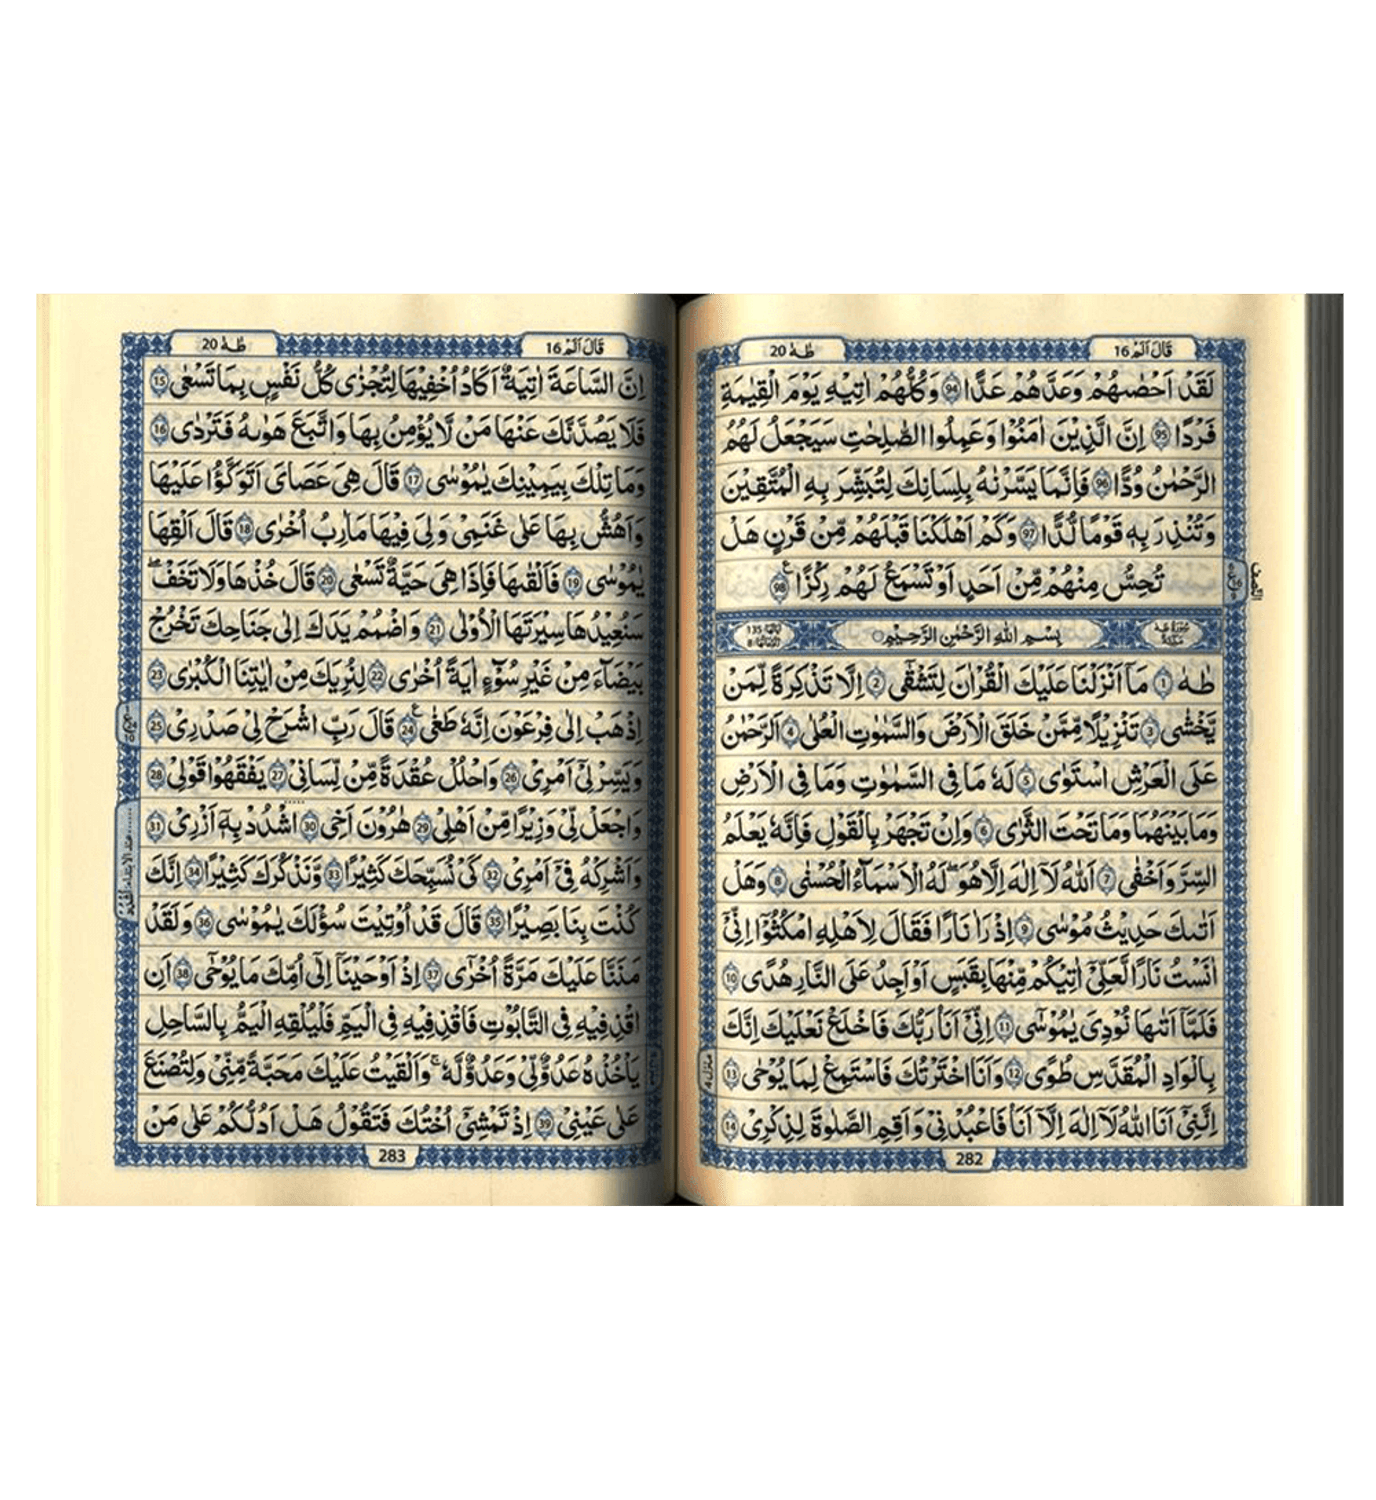 قَالَ اَلَمْ 16
طٰهٰ 20
لَقَدْ اَحْصٰىهُمْ وَعَدَّهُمْ عَدًّا 94 وَكُلُّهُمْ اٰتِيْهِ يَوْمَ الْقِيٰمَةِ
فَرْدًا 95 اِنَّ الَّذِيْنَ اٰمَنُوْا وَعَمِلُوا الصّٰلِحٰتِ سَيَجْعَلُ لَهُمُ
الرَّحْمٰنُ وُدًّا 96 فَاِنَّمَا يَسَّرْنٰهُ بِلِسَانِكَ لِتُبَشِّرَ بِهِ الْمُتَّقِيْنَ
وَتُنْذِرَ بِهٖ قَوْمًا لُّدًّا 97 وَكَمْ اَهْلَكْنَا قَبْلَهُمْ مِّنْ قَرْنٍ هَلْ
تُحِسُّ مِنْهُمْ مِّنْ اَحَدٍ اَوْ تَسْمَعُ لَهُمْ رِكْزًا 98
بِسْمِ اللّٰهِ الرَّحْمٰنِ الرَّحِيْمِ
طٰهٰ 1 مَاۤ اَنْزَلْنَا عَلَيْكَ الْقُرْاٰنَ لِتَشْقٰٓى 2 اِلَّا تَذْكِرَةً لِّمَنْ
يَّخْشٰى 3 تَنْزِيْلًا مِّمَّنْ خَلَقَ الْاَرْضَ وَالسَّمٰوٰتِ الْعُلٰى 4 اَلرَّحْمٰنُ
عَلَى الْعَرْشِ اسْتَوٰى 5 لَهٗ مَا فِى السَّمٰوٰتِ وَمَا فِى الْاَرْضِ
وَمَا بَيْنَهُمَا وَمَا تَحْتَ الثَّرٰى 6 وَاِنْ تَجْهَرْ بِالْقَوْلِ فَاِنَّهٗ يَعْلَمُ
السِّرَّ وَاَخْفٰى 7 اَللّٰهُ لَاۤ اِلٰهَ اِلَّا هُوَ ؕ لَهُ الْاَسْمَآءُ الْحُسْنٰى 8 وَهَلْ
اَتٰىكَ حَدِيْثُ مُوْسٰى 9 اِذْ رَاٰ نَارًا فَقَالَ لِاَهْلِهِ امْكُثُوْۤا اِنِّىْۤ
اٰنَسْتُ نَارًا لَّعَلِّىْۤ اٰتِيْكُمْ مِّنْهَا بِقَبَسٍ اَوْ اَجِدُ عَلَى النَّارِ هُدًى 10
فَلَمَّاۤ اَتٰىهَا نُوْدِىَ يٰمُوْسٰى 11 اِنِّىْۤ اَنَا رَبُّكَ فَاخْلَعْ نَعْلَيْكَ اِنَّكَ
بِالْوَادِ الْمُقَدَّسِ طُوًى 12 وَاَنَا اخْتَرْتُكَ فَاسْتَمِعْ لِمَا يُوْحٰى 13
اِنَّنِىْۤ اَنَا اللّٰهُ لَاۤ اِلٰهَ اِلَّاۤ اَنَا فَاعْبُدْنِىْ وَاَقِمِ الصَّلٰوةَ لِذِكْرِىْ 14
282
قَالَ اَلَمْ 16
طٰهٰ 20
اِنَّ السَّاعَةَ اٰتِيَةٌ اَكَادُ اُخْفِيْهَا لِتُجْزٰى كُلُّ نَفْسٍ بِمَا تَسْعٰى 15
فَلَا يَصُدَّنَّكَ عَنْهَا مَنْ لَّا يُؤْمِنُ بِهَا وَاتَّبَعَ هَوٰىهُ فَتَرْدٰى 16
وَمَا تِلْكَ بِيَمِيْنِكَ يٰمُوْسٰى 17 قَالَ هِىَ عَصَاىَ اَتَوَكَّؤُا عَلَيْهَا
وَاَهُشُّ بِهَا عَلٰى غَنَمِىْ وَلِىَ فِيْهَا مَاٰرِبُ اُخْرٰى 18 قَالَ اَلْقِهَا
يٰمُوْسٰى 19 فَاَلْقٰىهَا فَاِذَا هِىَ حَيَّةٌ تَسْعٰى 20 قَالَ خُذْهَا وَلَا تَخَفْ
سَنُعِيْدُهَا سِيْرَتَهَا الْاُوْلٰى 21 وَاضْمُمْ يَدَكَ اِلٰى جَنَاحِكَ تَخْرُجْ
بَيْضَآءَ مِنْ غَيْرِ سُوْٓءٍ اٰيَةً اُخْرٰى 22 لِنُرِيَكَ مِنْ اٰيٰتِنَا الْكُبْرٰى 23
اِذْهَبْ اِلٰى فِرْعَوْنَ اِنَّهٗ طَغٰى 24 قَالَ رَبِّ اشْرَحْ لِىْ صَدْرِىْ 25
وَيَسِّرْ لِىْۤ اَمْرِىْ 26 وَاحْلُلْ عُقْدَةً مِّنْ لِّسَانِىْ 27 يَفْقَهُوْا قَوْلِىْ 28
وَاجْعَلْ لِّىْ وَزِيْرًا مِّنْ اَهْلِىْ 29 هٰرُوْنَ اَخِى 30 اشْدُدْ بِهٖۤ اَزْرِىْ 31
وَاَشْرِكْهُ فِىْۤ اَمْرِىْ 32 كَىْ نُسَبِّحَكَ كَثِيْرًا 33 وَّنَذْكُرَكَ كَثِيْرًا 34 اِنَّكَ
كُنْتَ بِنَا بَصِيْرًا 35 قَالَ قَدْ اُوْتِيْتَ سُؤْلَكَ يٰمُوْسٰى 36 وَلَقَدْ
مَنَنَّا عَلَيْكَ مَرَّةً اُخْرٰٓى 37 اِذْ اَوْحَيْنَاۤ اِلٰٓى اُمِّكَ مَا يُوْحٰٓى 38 اَنِ
اقْذِفِيْهِ فِى التَّابُوْتِ فَاقْذِفِيْهِ فِى الْيَمِّ فَلْيُلْقِهِ الْيَمُّ بِالسَّاحِلِ
يَاْخُذْهُ عَدُوٌّ لِّىْ وَعَدُوٌّ لَّهٗ وَاَلْقَيْتُ عَلَيْكَ مَحَبَّةً مِّنِّىْ وَلِتُصْنَعَ
عَلٰى عَيْنِىْ 39 اِذْ تَمْشِىْۤ اُخْتُكَ فَتَقُوْلُ هَلْ اَدُلُّكُمْ عَلٰى مَنْ
283